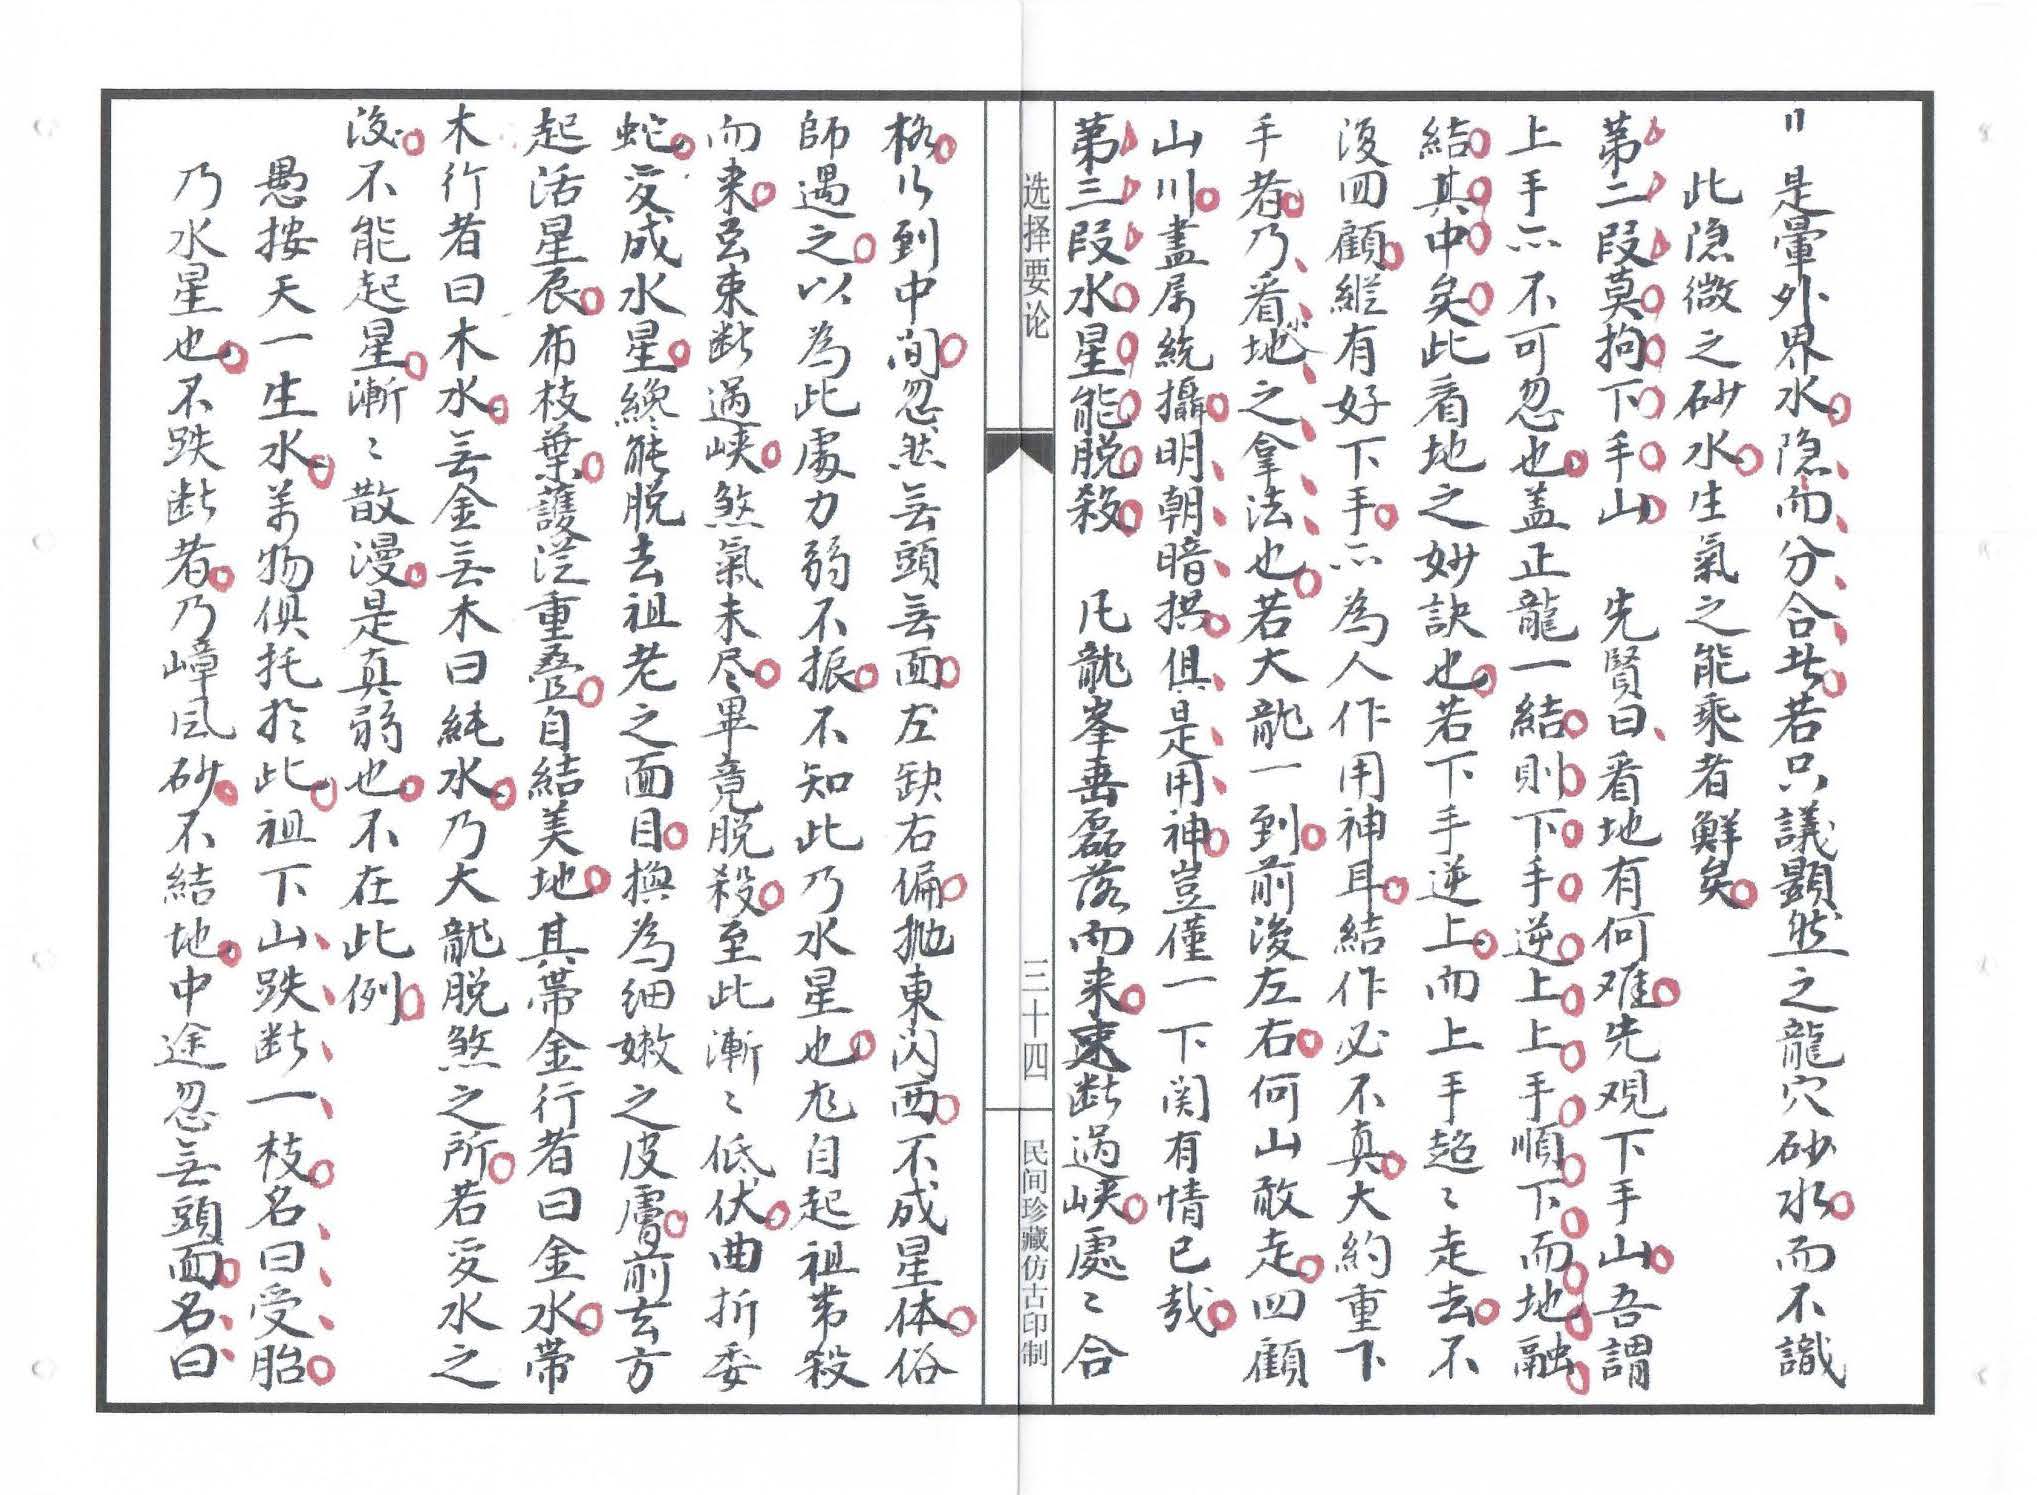 〃是暈外界水隐而分合此若只議顯然之龍穴砂水而不識
此隐微之砂水生氣之能乘者鮮矣
第二段莫拘下手山　先賢曰看地有何难先观下手山吾謂
上手亦不可忽也盖正龍一結則下手逆上上手順下而地融
結其中矣此看地之妙訣也若下手逆上而上手趋〻走去不
後回顧縱有好下手亦為人作用神耳結作必不真大約重下
手者乃看地之拿法也若大龍一到前後左右何山敢走回顧
山川盡属統攝明朝暗拱俱是用神豈僅一下関有情已哉
第三段水星能脱殺　凡龍峯巒磊落而来束断過峡處〻合
选择要论
三十四
民间珍藏仿古印制
格行到中间忽然無頭無面左缺右偏抛東闪西不成星体俗
師遇之以為此處力弱不振不知此乃水星也凡自起祖带殺
而来至束断過峡煞氣未尽畢竟脱殺至此漸〻低伏曲折委
蛇变成水星纔能脱去祖老之面目換為细嫩之皮膚前去方
起活星辰布枝葉護從重叠自結美地其帶金行者曰金水帶
木行者曰木水無金無木曰純水乃大龍脱煞之所若变水之
後不能起星漸〻散漫是真弱也不在此例
愚按天一生水萬物俱托於此祖下山跌断一枝名曰受胎
乃水星也不跌断者乃嶂風砂不結地中途忽無頭面名曰